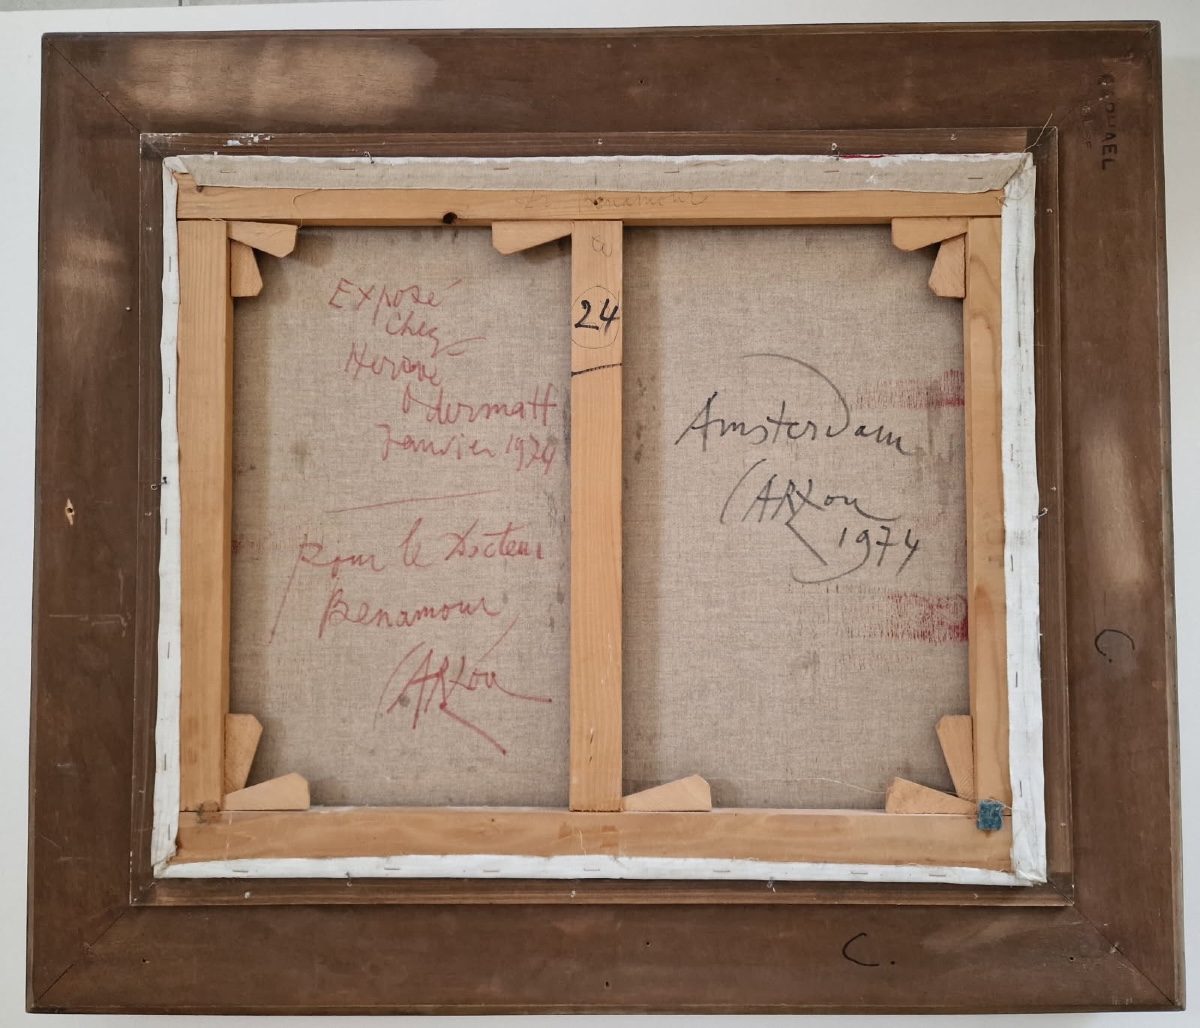 Exposé
chez
Hervé
Odermatt
Janvier 1974
pour le Docteur
Benamour
CARZou
24
Amsterdam
CARZou
1974
C.
C.